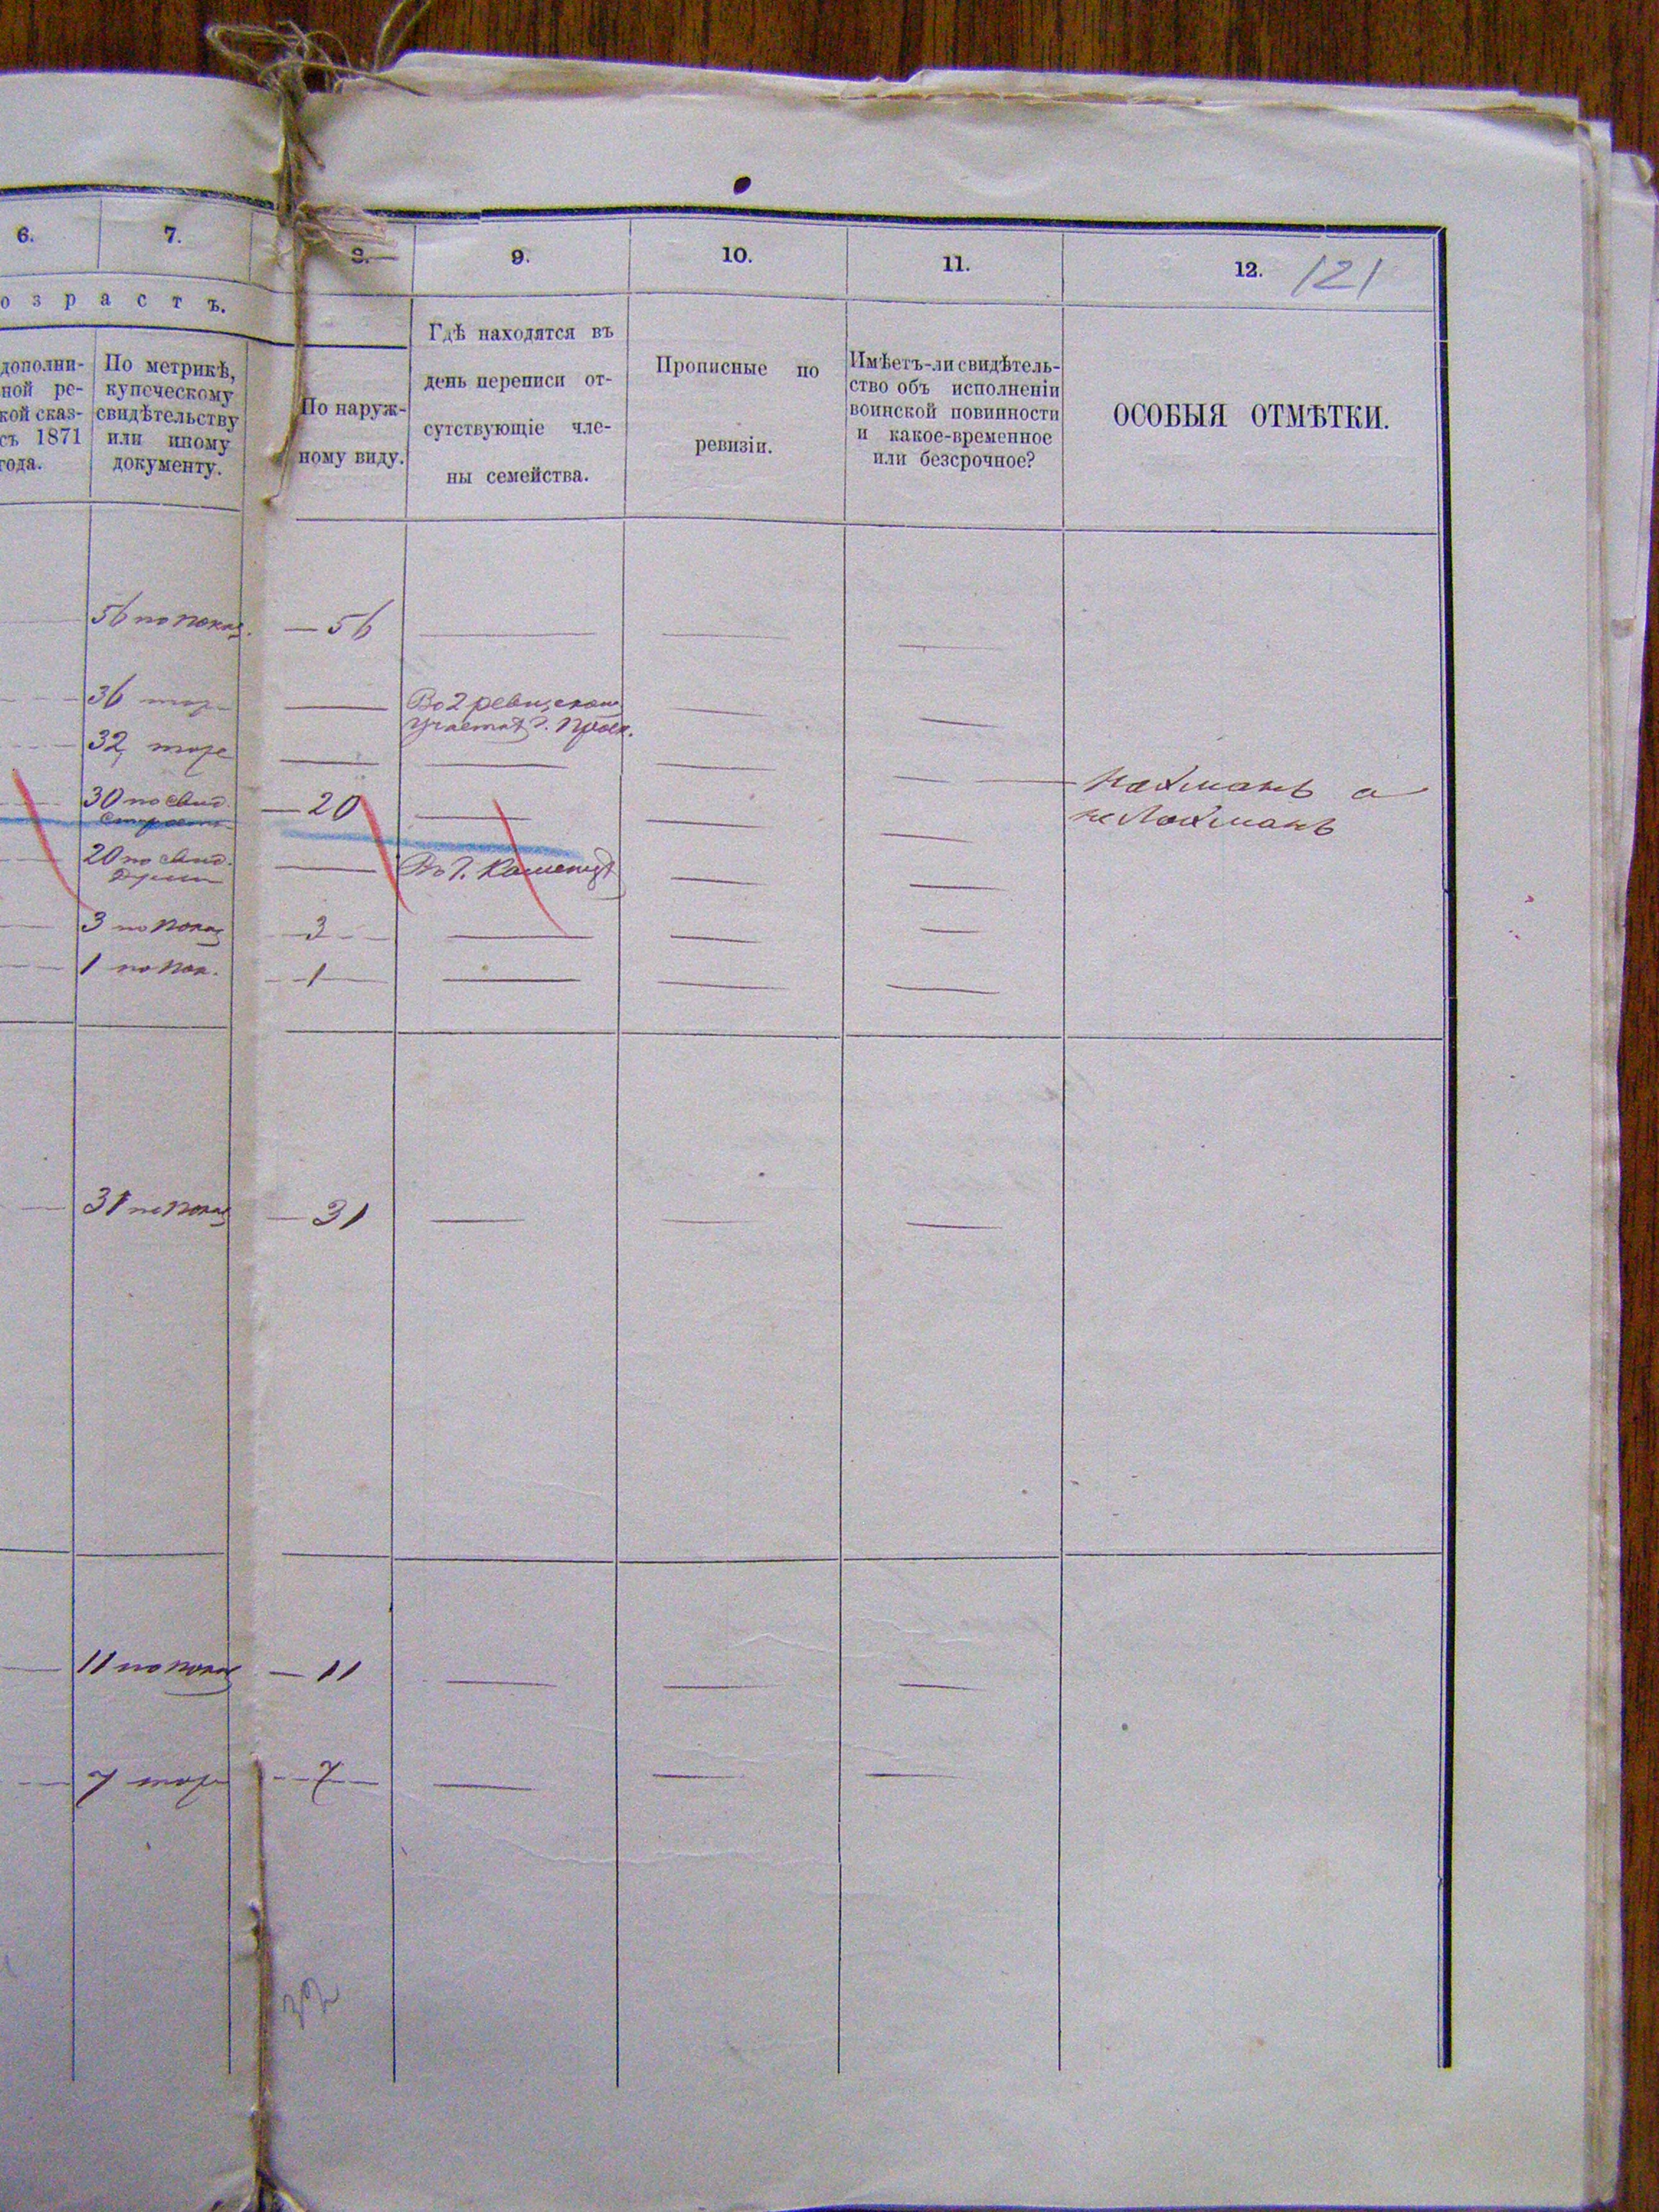 6. 7. 8. 9. 10. 11. 12. 121
о з р а с т ъ.
дополни-
ной ре-
кой сказ-
съ 1871
года.
По метрикѣ,
купеческому
свидѣтельству
или иному
документу.
По наруж-
ному виду.
Гдѣ находятся въ
день переписи от-
сутствующіе чле-
ны семейства.
Прописные по
ревизіи.
Имѣетъ-ли свидѣтель-
ство объ исполненіи
воинской повинности
и какое-временное
или безсрочное?
ОСОБЫЯ ОТМѢТКИ.
56 по показ. — 56
36 тоже Во 2
участкѣ г.
32 тоже
Нахманъ а
не Лахманъ
30 по свид. — 20
20 по свид. Въ г. Каменцѣ
3 по показ — 3
1 по пок. — 1
31 по показ — 31
11 по показ — 11
7 тоже — 7
32